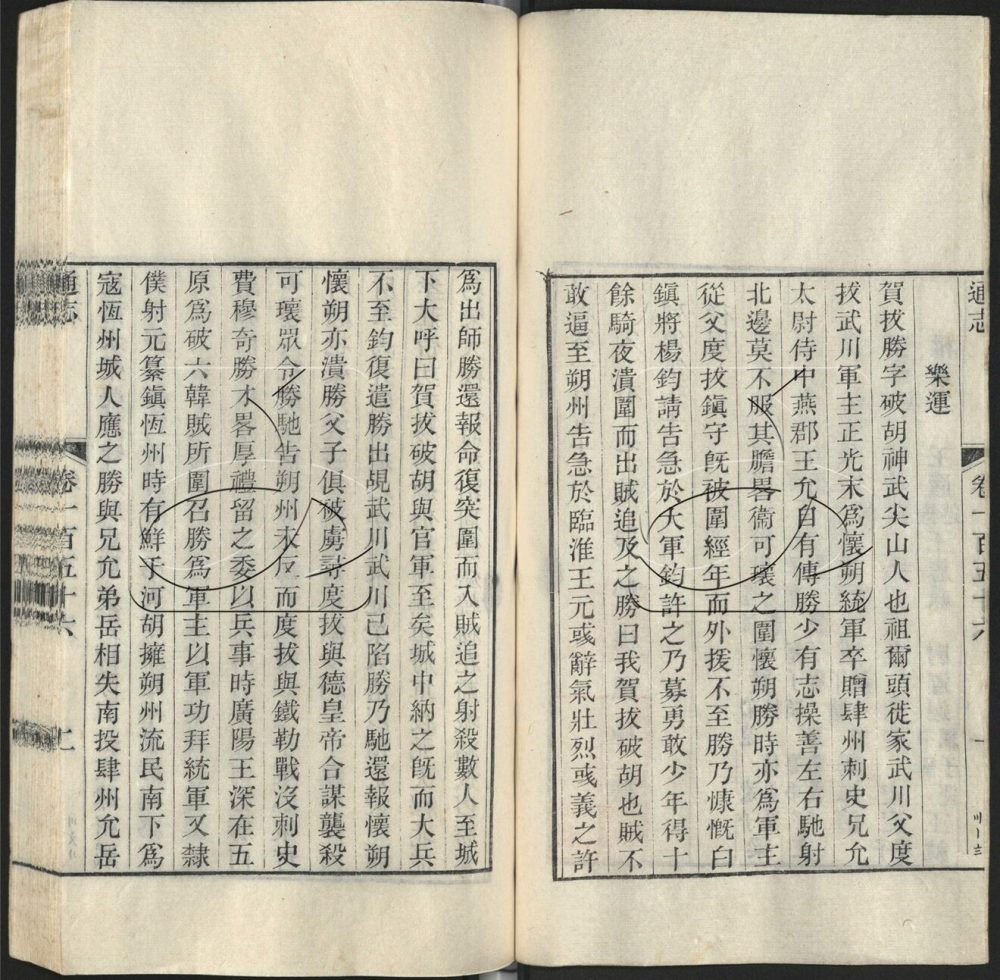 樂運
賀拔勝字破胡神武尖山人也祖爾頭徙家武川父度
拔武川軍主正光末爲懷朔統軍卒贈肆州刺史兄允
太尉侍中燕郡王允自有傳勝少有志操善左右馳射
北邊莫不服其膽畧衞可瓌之圍懷朔勝時亦爲軍主
從父度拔鎭守旣被圍經年而外援不至勝乃慷慨白
鎭將楊鈞請告急於大軍鈞許之乃募勇敢少年得十
餘騎夜潰圍而出賊追及之勝曰我賀拔破胡也賊不
敢逼至朔州告急於臨淮王元彧辭氣壯烈彧義之許
爲出師勝還報命復突圍而入賊追之射殺數人至城
下大呼曰賀拔破胡與官軍至矣城中納之旣而大兵
不至鈞復遣勝出覘武川武川已陷勝乃馳還報懷朔
懷朔亦潰勝父子俱被虜尋度拔與德皇帝合謀襲殺
可瓌眾令勝馳告朔州未反而度拔與鐵勒戰沒刺史
費穆奇勝才畧厚禮留之委以兵事時廣陽王深在五
原爲破六韓賊所圍召勝爲軍主以軍功拜統軍又隸
僕射元纂鎭恆州時有鮮于河胡擁朔州流民南下爲
寇恆州城人應之勝與兄允弟岳相失南投肆州允岳
通志
卷一百五十六